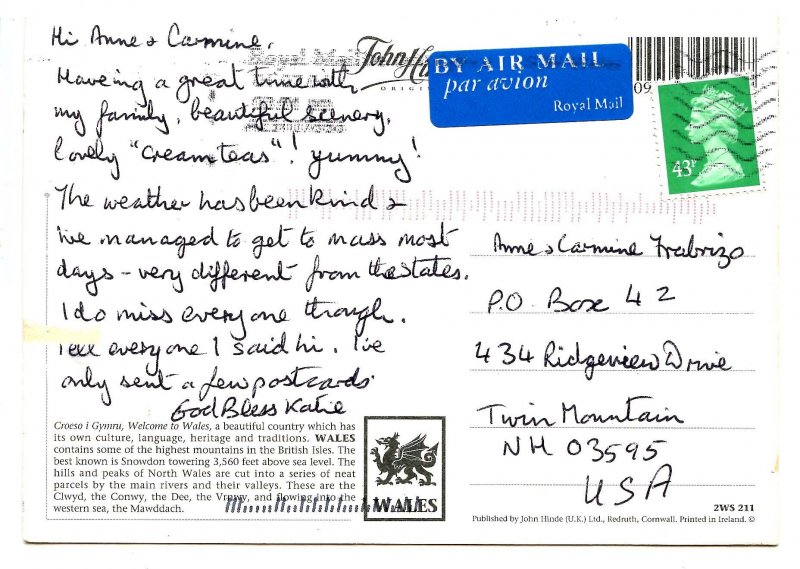 Hi Anne & Carmine,
Haveing a great time with
my family, beautiful scenery,
lovely "cream teas"! yummy!
The weather has been kind &
I've managed to get to mass most
days - very different from the states.
I do miss everyone though.
Tell everyone I said hi. I've
only sent a few postcards.
God Bless Katie
Royal Mail
John Hi
ORIGI
BY AIR MAIL
par avion
Royal Mail
09
43P
Anne & Carmine Frabrizo
P.O. Box 42
434 Ridgeview Drive
Twin Mountain
NH 03595
USA
Croeso i Gymru, Welcome to Wales, a beautiful country which has
its own culture, language, heritage and traditions. WALES
contains some of the highest mountains in the British Isles. The
best known is Snowdon towering 3,560 feet above sea level. The
hills and peaks of North Wales are cut into a series of neat
parcels by the main rivers and their valleys. These are the
Clwyd, the Conwy, the Dee, the Vrnwy, and flowing into the
western sea, the Mawddach.
WALES
2WS 211
Published by John Hinde (U.K.) Ltd., Redruth, Cornwall. Printed in Ireland. ©